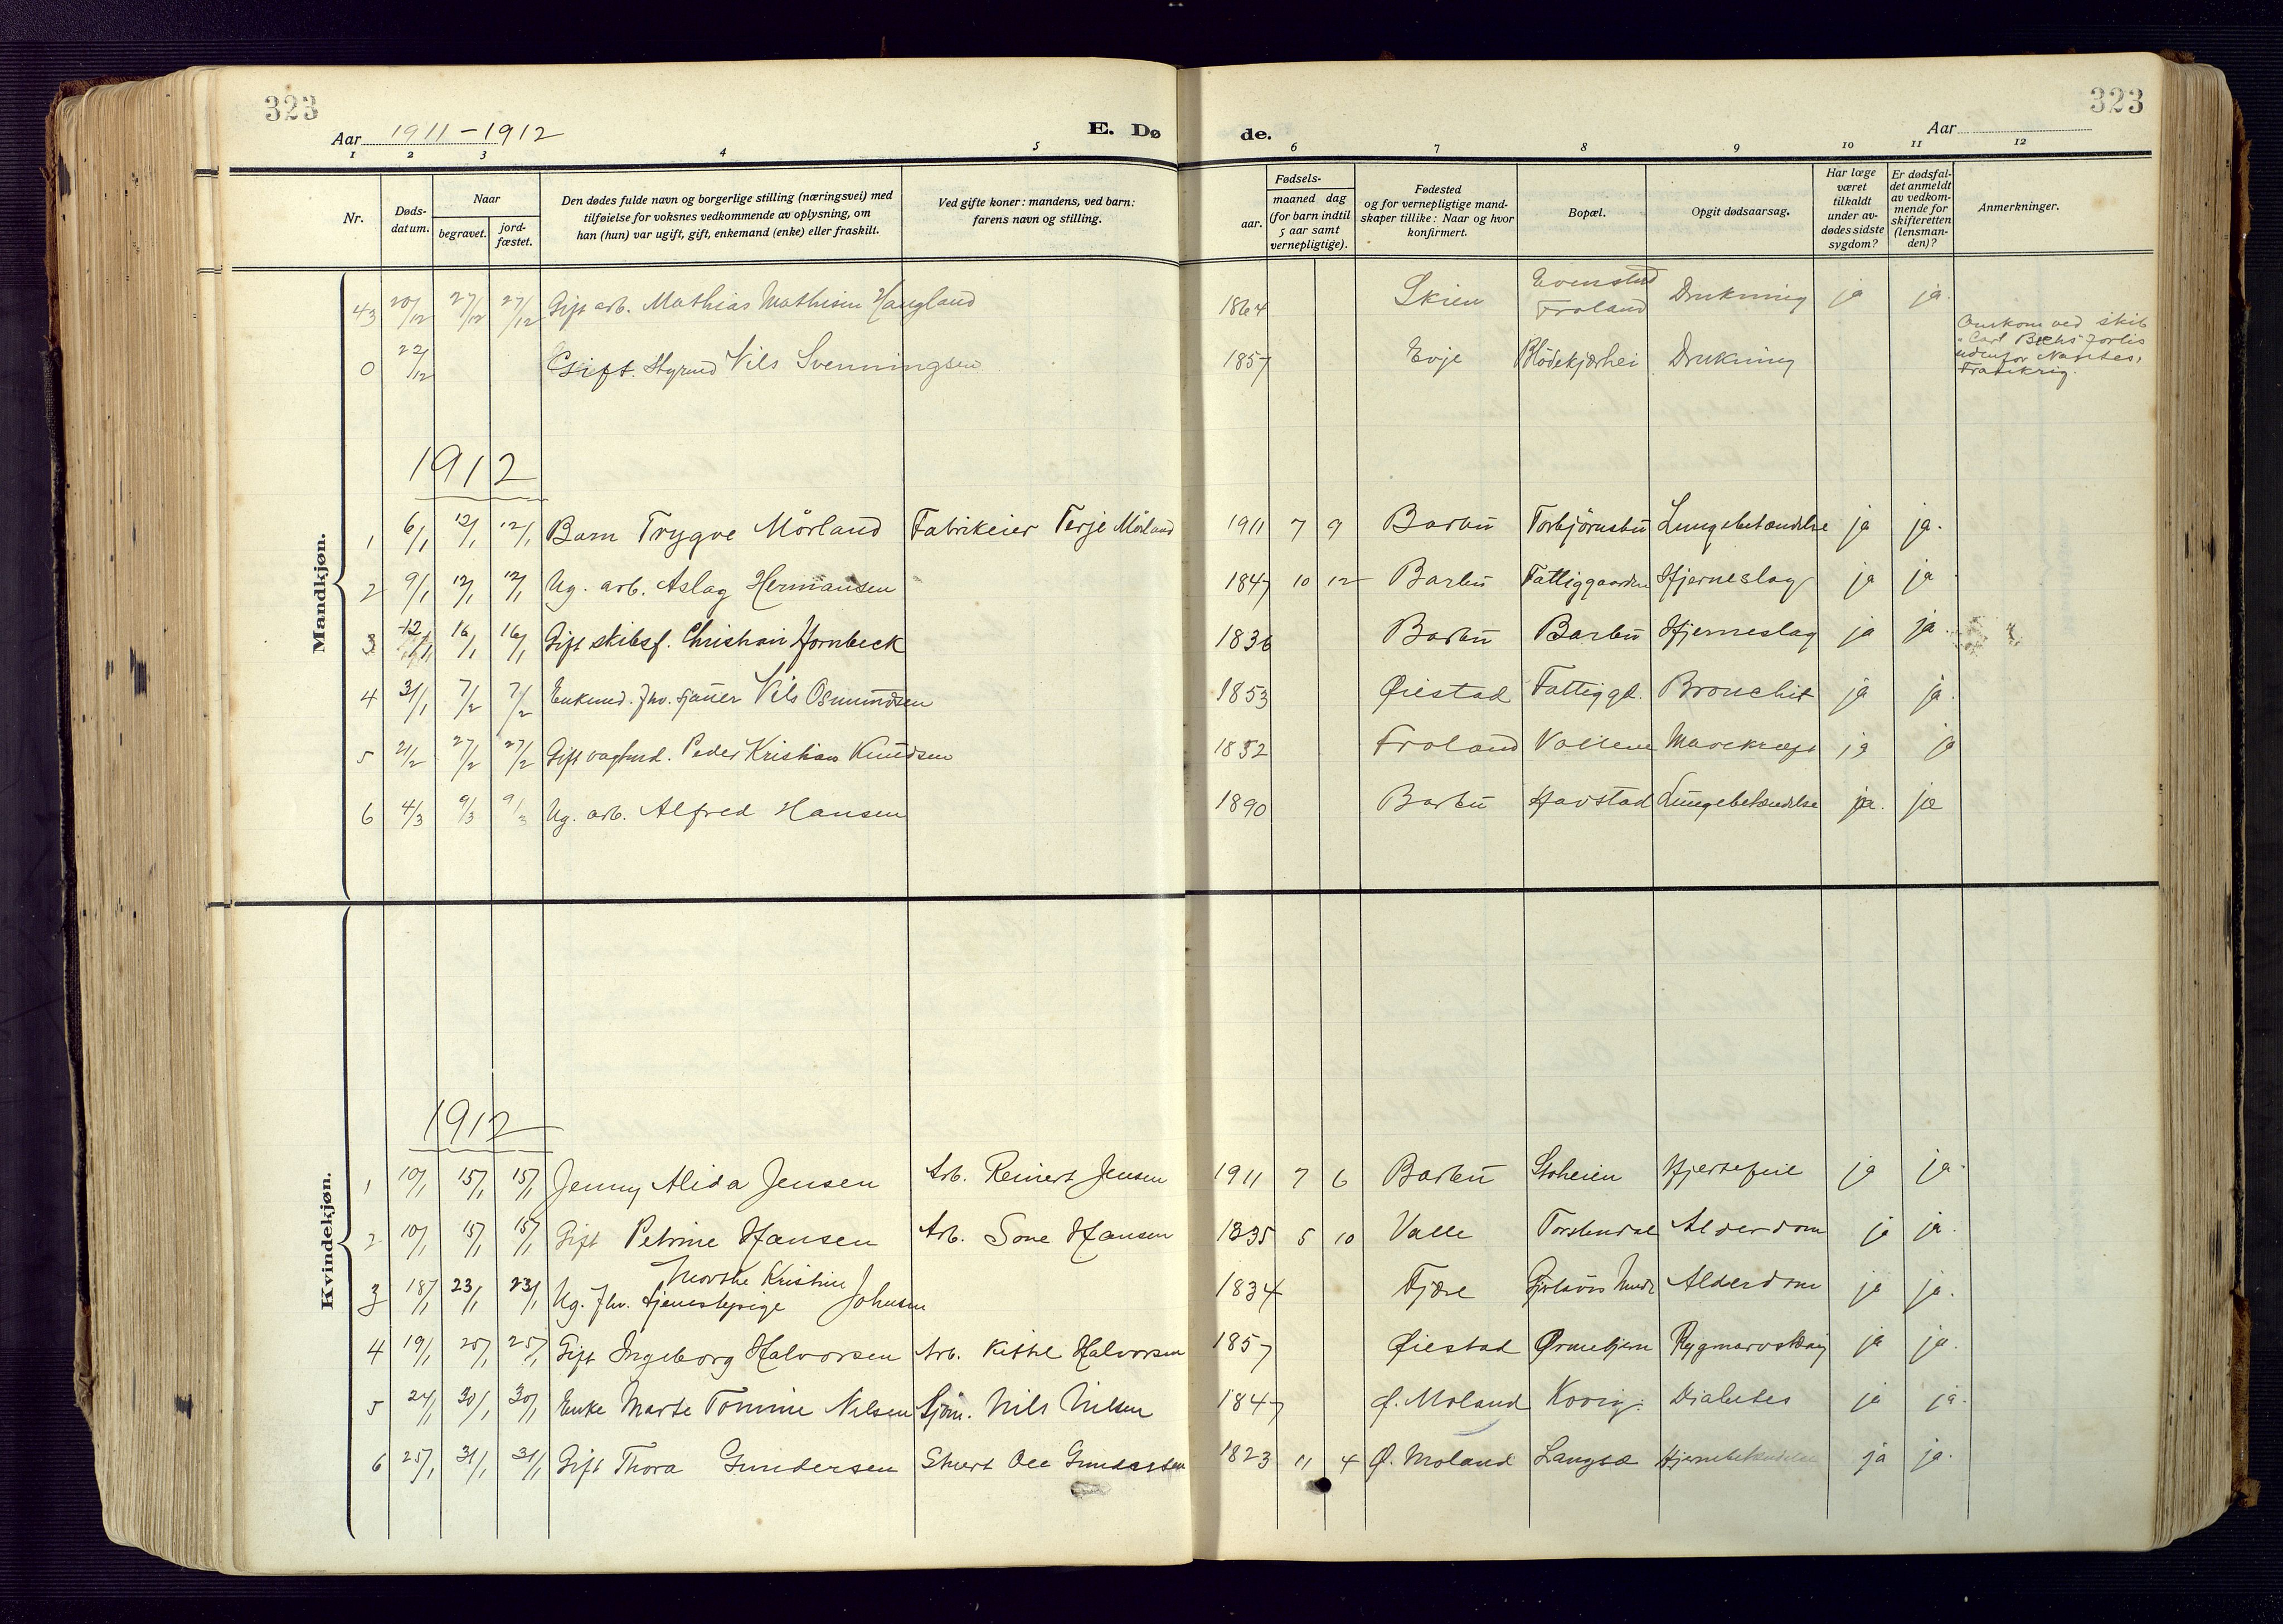 323
323
Aar 1911-1912
E. Dø
de.
Aar
1 2 3 4 5 6 7 8 9 10 11 12
Nr.
Døds-
datum.
Naar
begravet.
jord-
fæstet.
Den dødes fulde navn og borgerlige stilling (næringsvei) med
tilføielse for voksnes vedkommende av oplysning, om
han (hun) var ugift, gift, enkemand (enke) eller fraskilt.
Ved gifte koner: mandens, ved barn:
farens navn og stilling.
Fødsels-
aar.
maaned dag
(for barn indtil
5 aar samt
vernepligtige).
Fødested
og for vernepligtige mand-
skaper tillike: Naar og hvor
konfirmert.
Bopæl.
Opgit dødsaarsag.
Har læge
været
tilkaldt
under av-
dødes sidste
sygdom?
Er dødsfal-
det anmeldt
av vedkom-
mende for
skifteretten
(lensman-
den)?
Anmerkninger.
Mandkjøn.
43 20/12 27/12 27/12 Gift arb. Mathias Mathisen Haugland 1864 Skien Evenstad Froland Drukning ja ja.
0 22/12 Gift. Styrmd Nils Svenningsen 1857 Evje Blödekjærhei Drukning Omkom ved skib
"Carl Bechs" forlis
udenfor Nantes,
Frankrig.
1912
1 6/1 12/1 12/1 Barn Trygve Mörland Fabrikeier Terje Mörland 1911 7 9 Barbu Torbjörnsbu Lungebetændelse ja ja.
2 9/1 12/1 12/1 Ug. arb. Aslag Hermansen 1847 10 12 Barbu Fattiggaarden Hjerneslag ja ja
3 12/1 16/1 16/1 Gift skibsf. Christian Hornbeck 1836 Barbu Barbu Hjerneslag ja ja.
4 31/1 7/2 7/2 Enkemd. fhv. tjener Nils Osmundsen 1853 Øiestad Fattiggd. Bronchit ja ja.
5 21/2 27/2 27/2 Gift vagtmd. Peder Kristian Knudsen 1852 Froland Vollene Mavekræft ja ja
6 4/3 9/3 9/3 Ug. arb. Alfred Hansen 1890 Barbu Havstad Lungebetændelse ja. ja
Kvindekjøn.
1912
1 10/1 15/1 15/1 Jenny Alida Jensen Arb. Reinert Jensen 1911 7 6 Barbu Stoheien Hjertefeil ja ja.
2 10/1 15/1 15/1 Gift Petrine Hansen Arb. Sone Hansen 1835 5 10 Valle Torstendal Alderdom ja ja.
3 18/1 23/1 23/1 Ug. fhv. tjenestepige Kristine Johnsen 1834 Fjære Alderdom ja ja.
4 19/1 25/1 25/1 Gift Ingeborg Halvorsen Arb. Kittil Halvorsen 1857 Øiestad Rygmarvstæring ja ja.
5 24/1 30/1 30/1 Enke Marte Tomine Nilsen Sjöm. Nils Nilsen 1847 Ø. Moland Kovig. Diabetes ja ja.
6 25/1 31/1 31/1 Gift Thora Gundersen Stuert Ole Gundersen 1823 11 4 Ø. Moland Langsæ Hjernebetændelse ja ja.